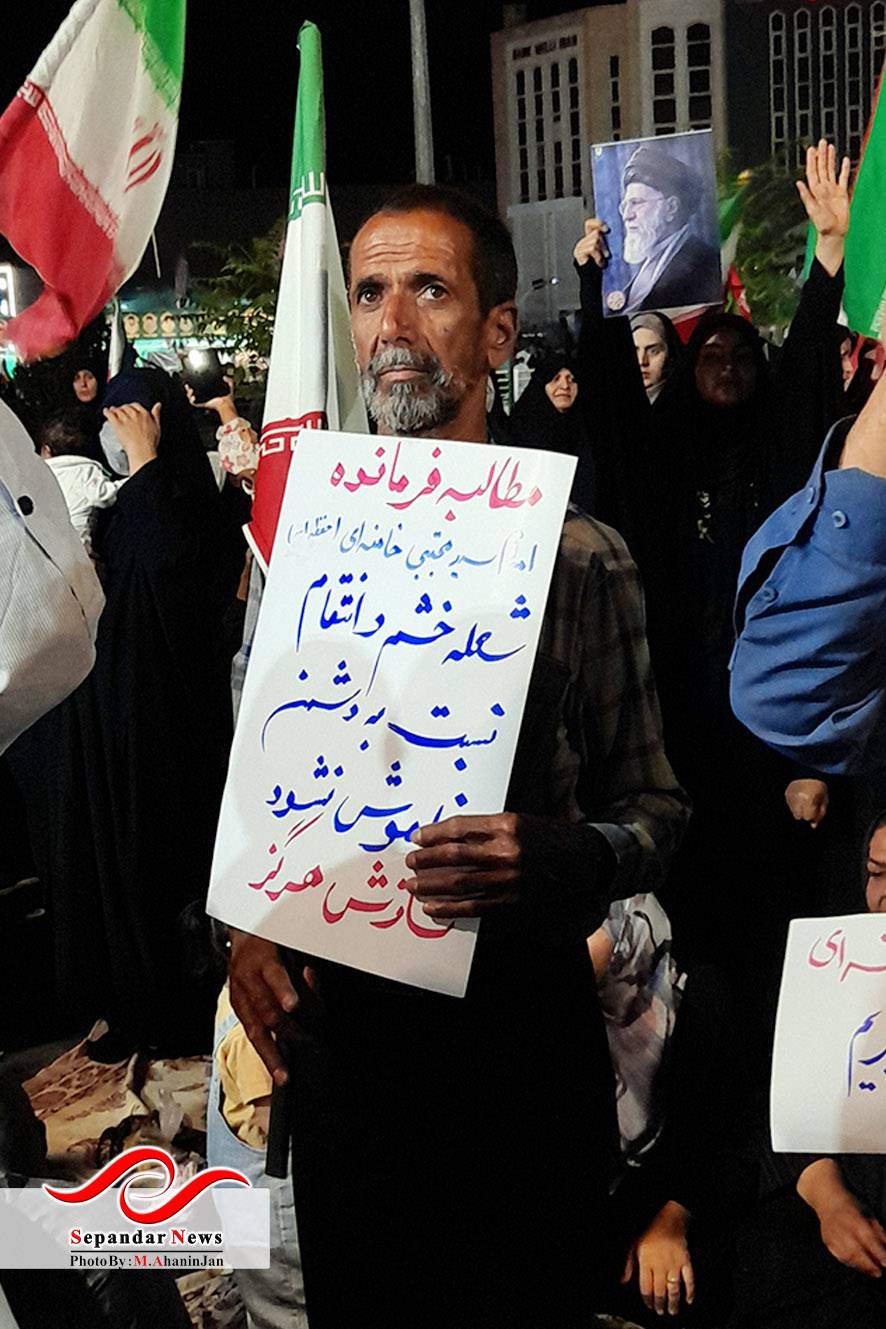 BANK MELLI IRAN
مطالبه فرمانده
امام سید مجتبی خامنه‌ای (حفظه الله)
شعله خشم و انتقام
نسبت به دشمن
خاموش نشود
سازش هرگز
Sepandar News
Photo By : M.AhaninJan